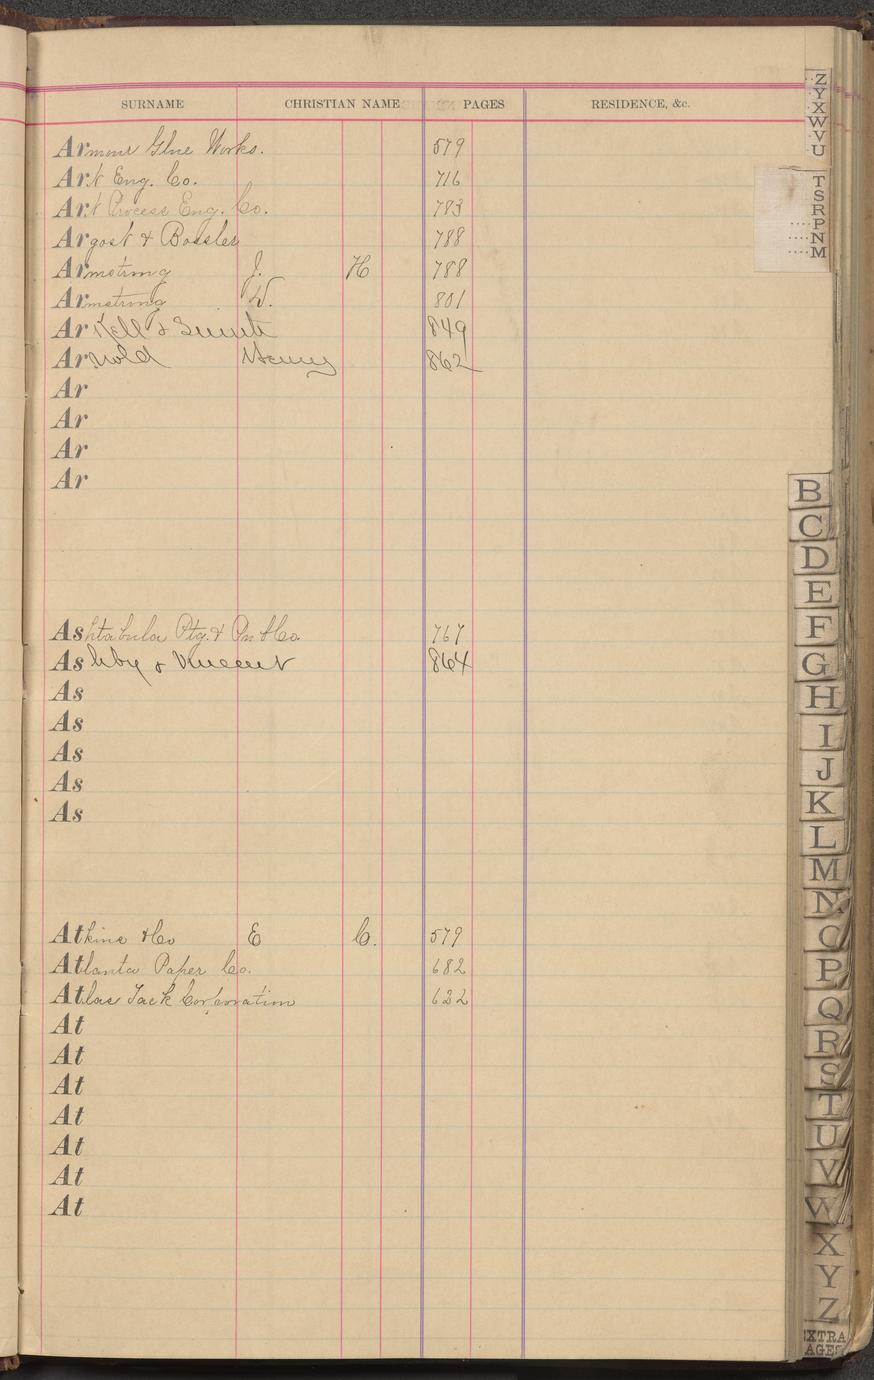 SURNAME CHRISTIAN NAME PAGES RESIDENCE, &c.
Armour Glue Works. 579
Art Eng. Co. 716
Art Process Eng. Co. 783
Argost & Bossler 788
Armstrong J. H 788
Armstrong W. 801
Arkell & Smith 849
Arnold Henry 862
Ar
Ar
Ar
Ar
Ashtabula Ptg. & Co. 767
Ashby & Vincent 864
As
As
As
As
As
Atkins & Co E C. 579
Atlanta Paper Co. 682
Atlas Tack Corporation 622
At
At
At
At
At
At
At
Z
Y
X
W
V
U
T
S
R
P
N
M
B
C
D
E
F
G
H
I
J
K
L
M
N
O
P
Q
R
S
T
U
V
W
X
Y
Z
EXTRA